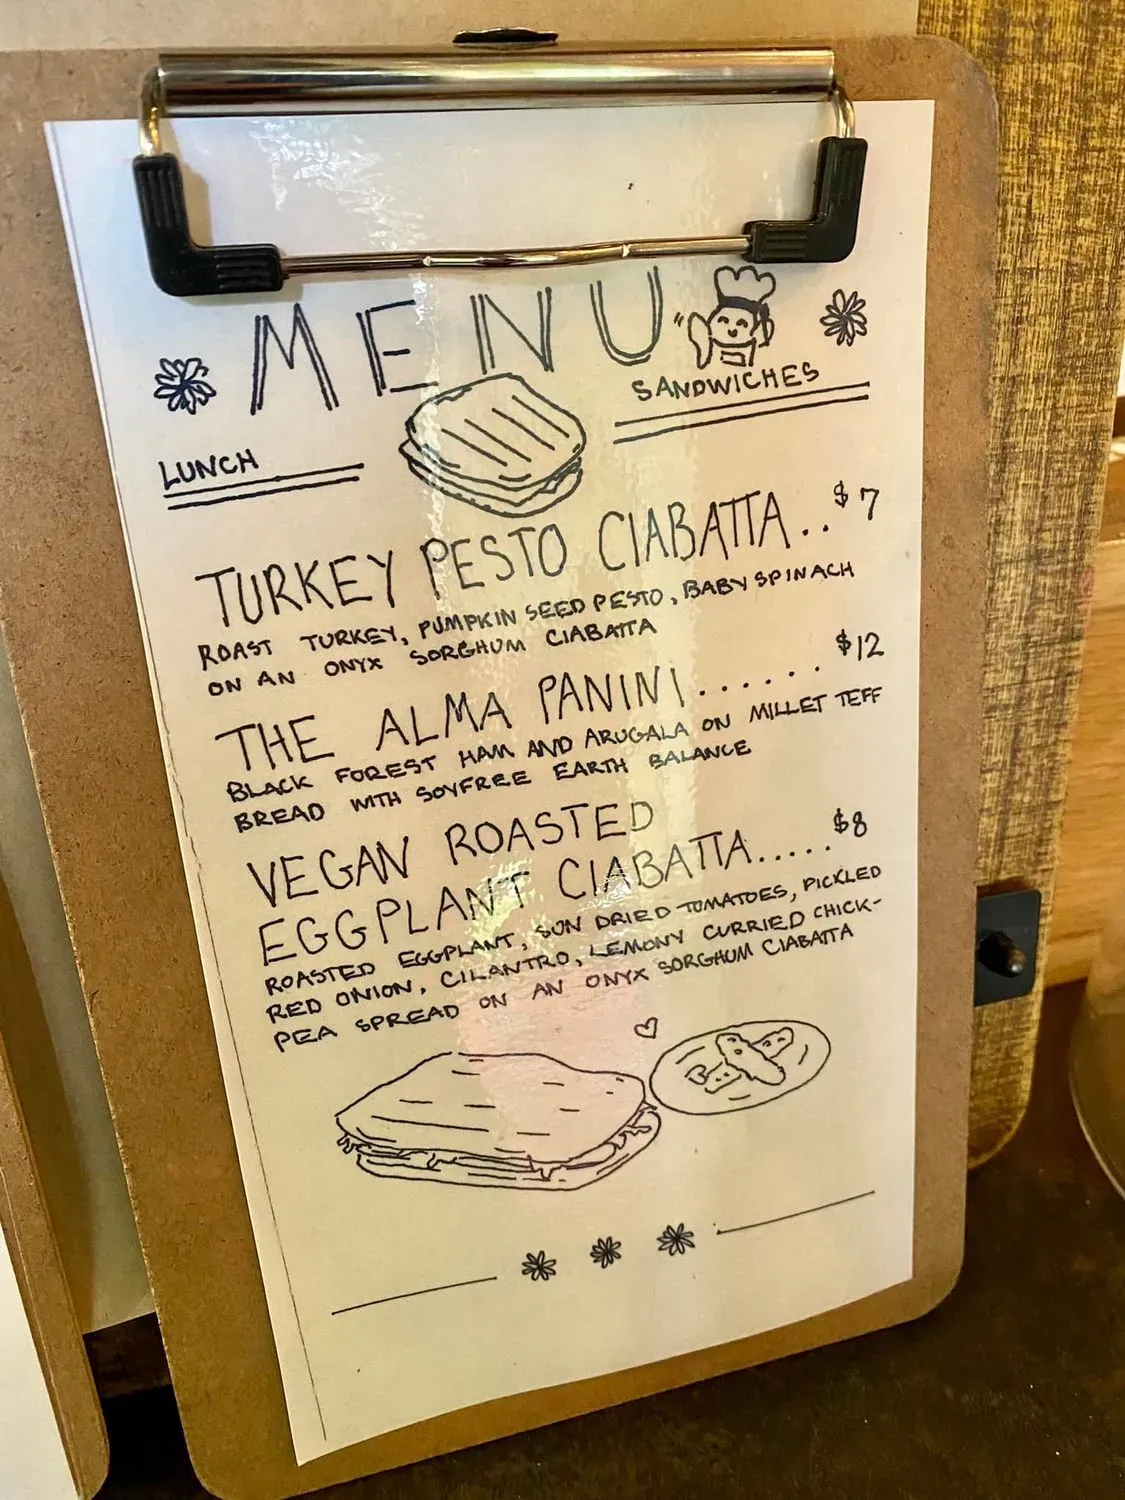 MENU
SANDWICHES
LUNCH
TURKEY PESTO CIABATTA..$7
ROAST TURKEY, PUMPKIN SEED PESTO, BABY SPINACH
ON AN ONYX SORGHUM CIABATTA
THE ALMA PANINI......$12
BLACK FOREST HAM AND ARUGALA ON MILLET TEFF
BREAD WITH SOYFREE EARTH BALANCE
VEGAN ROASTED
EGGPLANT CIABATTA.....$8
ROASTED EGGPLANT, SUN DRIED TOMATOES, PICKLED
RED ONION, CILANTRO, LEMONY CURRIED CHICK-
PEA SPREAD ON AN ONYX SORGHUM CIABATTA